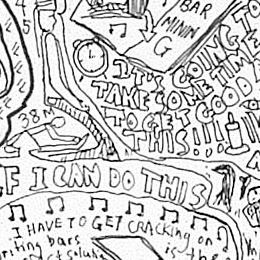 4
5
BAR
MININ
G
IT'S GOING TO
TAKE SOME TIME
TO GET GOOD
THIS!!!
38M
IF I CAN DO THIS
I HAVE TO GET CRACKING on
writing bars is the